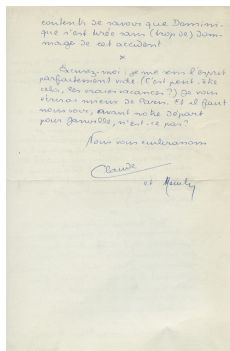 contents de savoir que Domini-
que s'est tirée sans (trop de) dom-
mage de cet accident
x
Excusez-moi, je me sens l'esprit
parfaitement vide (C'est peut-être
cela, les vraies vacances?) Je vous
écrirai mieux de Paris. Et il faut
nous voir, avant notre départ
pour , n'est-ce pas?
Nous vous embrassons
Claude
et